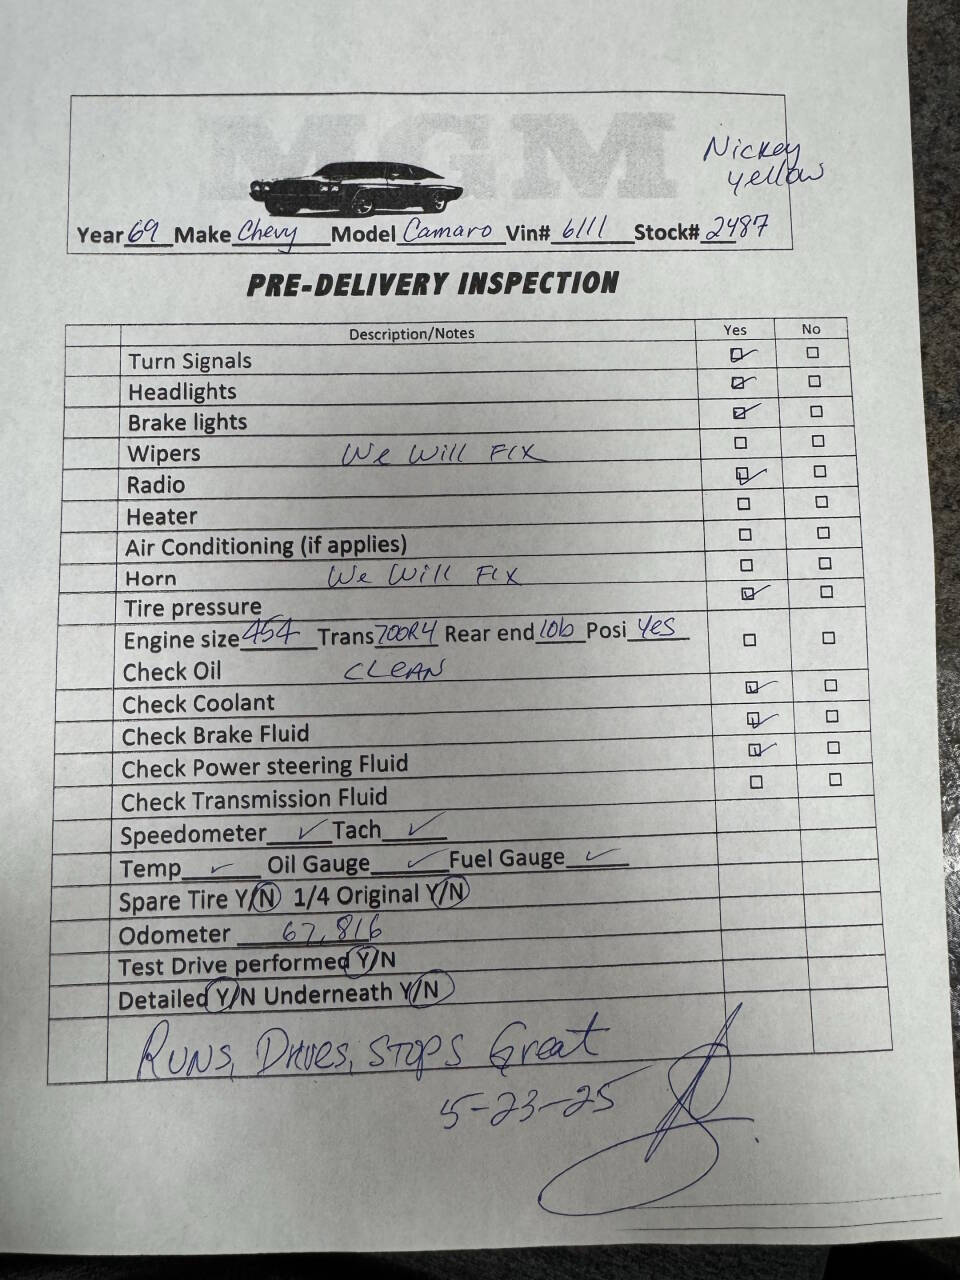 MGM
Nickey
Yellow
Year 69 Make Chevy Model Camaro Vin# 6111 Stock# 2487
PRE-DELIVERY INSPECTION
Description/Notes Yes No
Turn Signals
Headlights
Brake lights
Wipers We Will FIX
Radio
Heater
Air Conditioning (if applies)
Horn We Will FIX
Tire pressure
Engine size 454 Trans 700R4 Rear end 10b Posi Yes
Check Oil CLEAN
Check Coolant
Check Brake Fluid
Check Power steering Fluid
Check Transmission Fluid
Speedometer ✓ Tach ✓
Temp ✓ Oil Gauge ✓ Fuel Gauge ✓
Spare Tire Y/N 1/4 Original Y/N
Odometer 67,816
Test Drive performed Y/N
Detailed Y/N Underneath Y/N
RUNS, DRIVES, STOPS Great
5-23-25